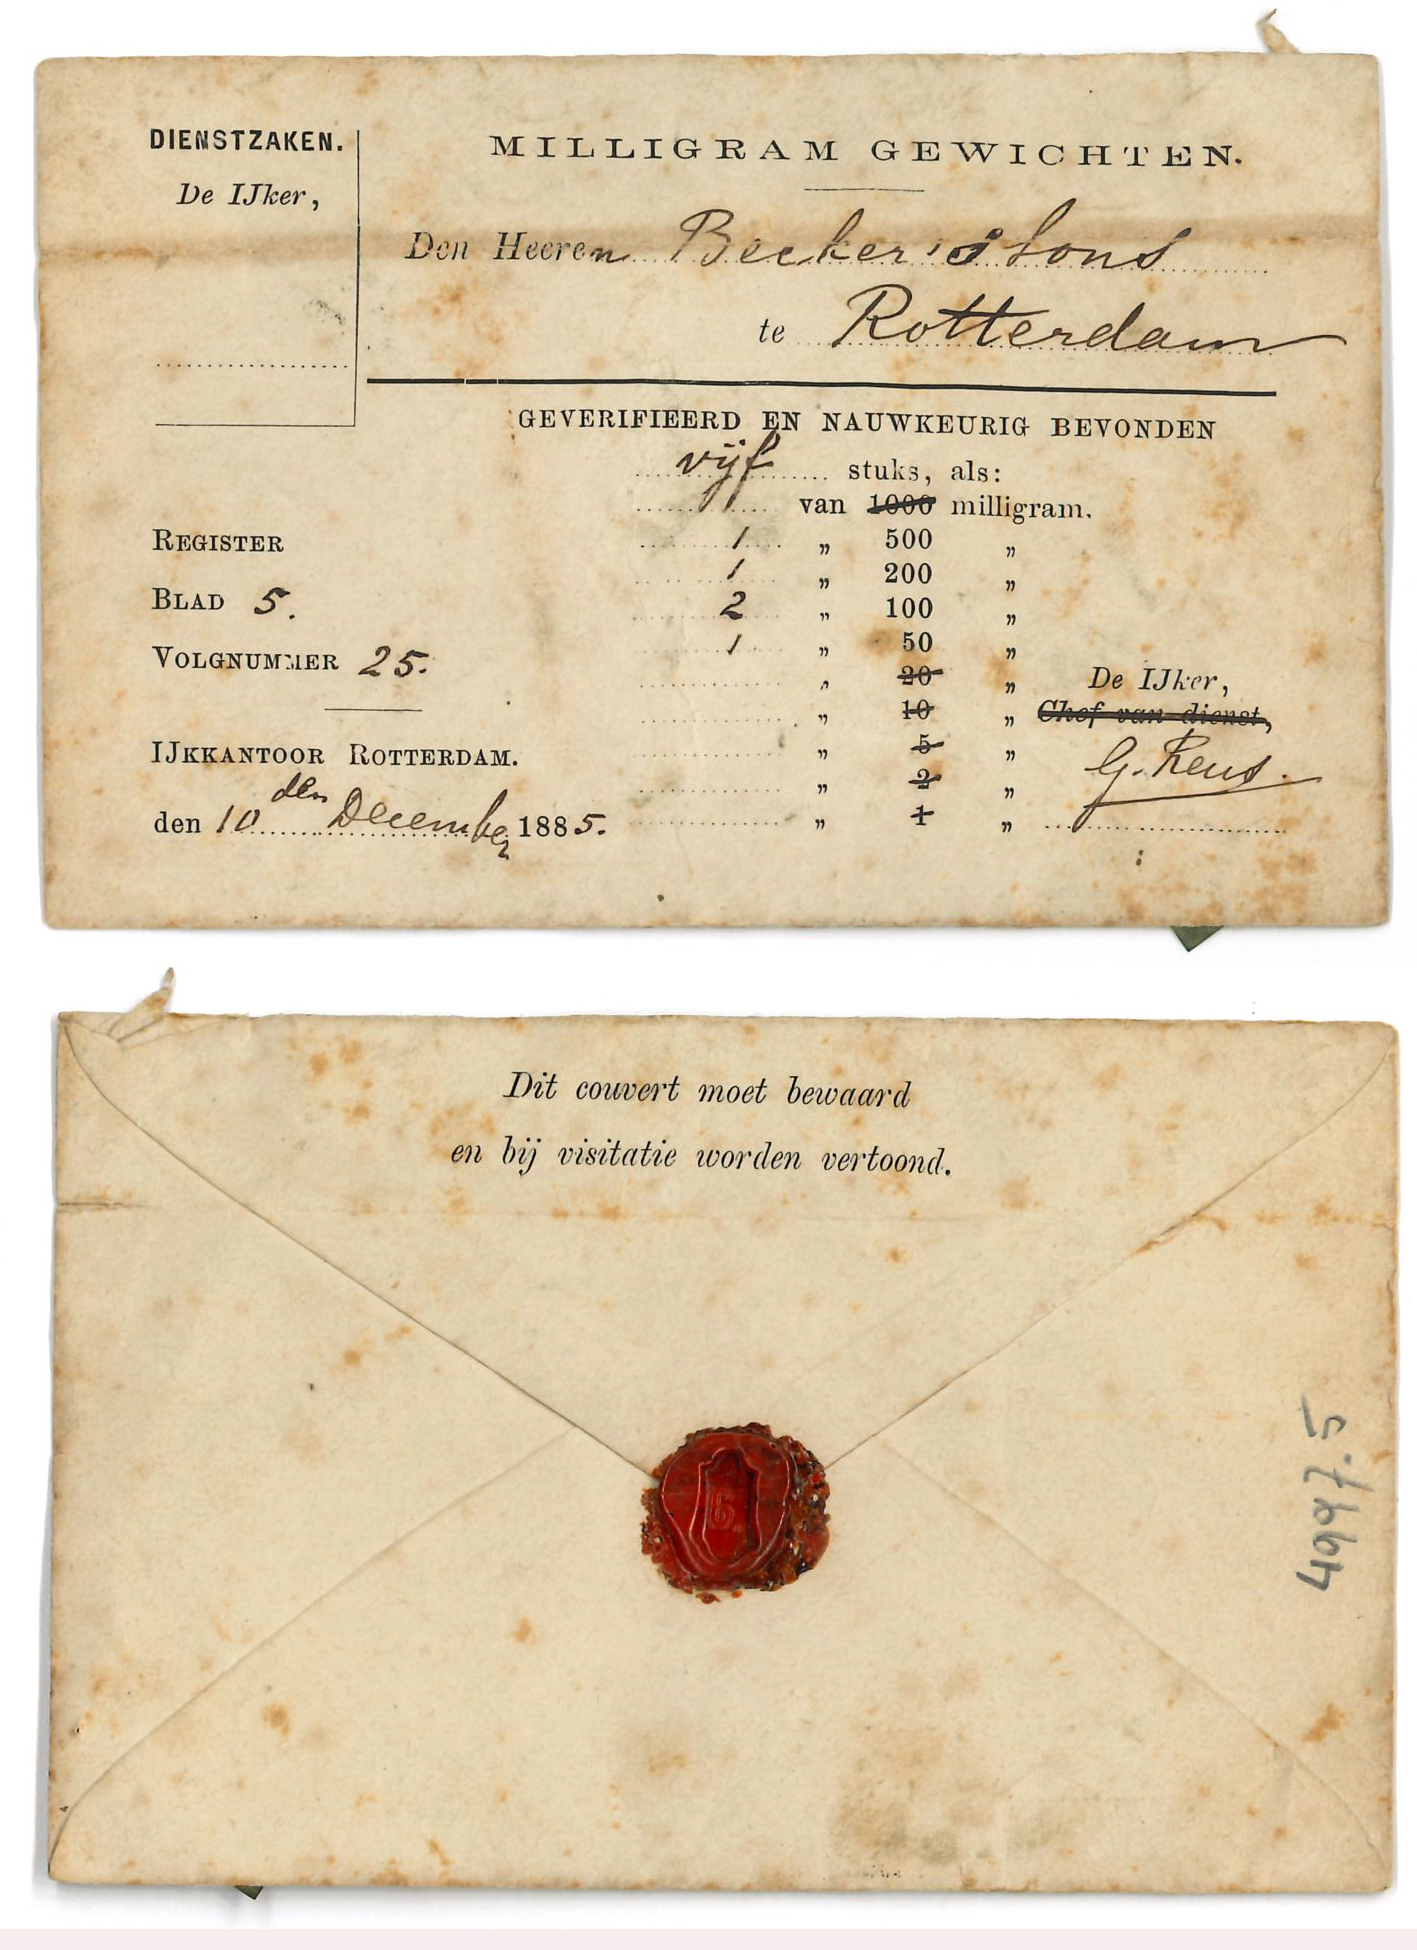 DIENSTZAKEN.
De IJker,
MILLIGRAM GEWICHTEN.
Den Heeren Becker's Sons
te Rotterdam
GEVERIFIEERD EN NAUWKEURIG BEVONDEN
vijf stuks, als:
van 1000 milligram.
1 „ 500 „
1 „ 200 „
2 „ 100 „
1 „ 50 „
„ 20 „
„ 10 „
„ 5 „
„ 2 „
„ 1 „
REGISTER
BLAD 5.
VOLGNUMMER 25.
IJKKANTOOR ROTTERDAM.
den 10 den December 1885.
De IJker,
Chef van dienst,
G. Reus.
Dit couvert moet bewaard
en bij visitatie worden vertoond.
6
4997.5